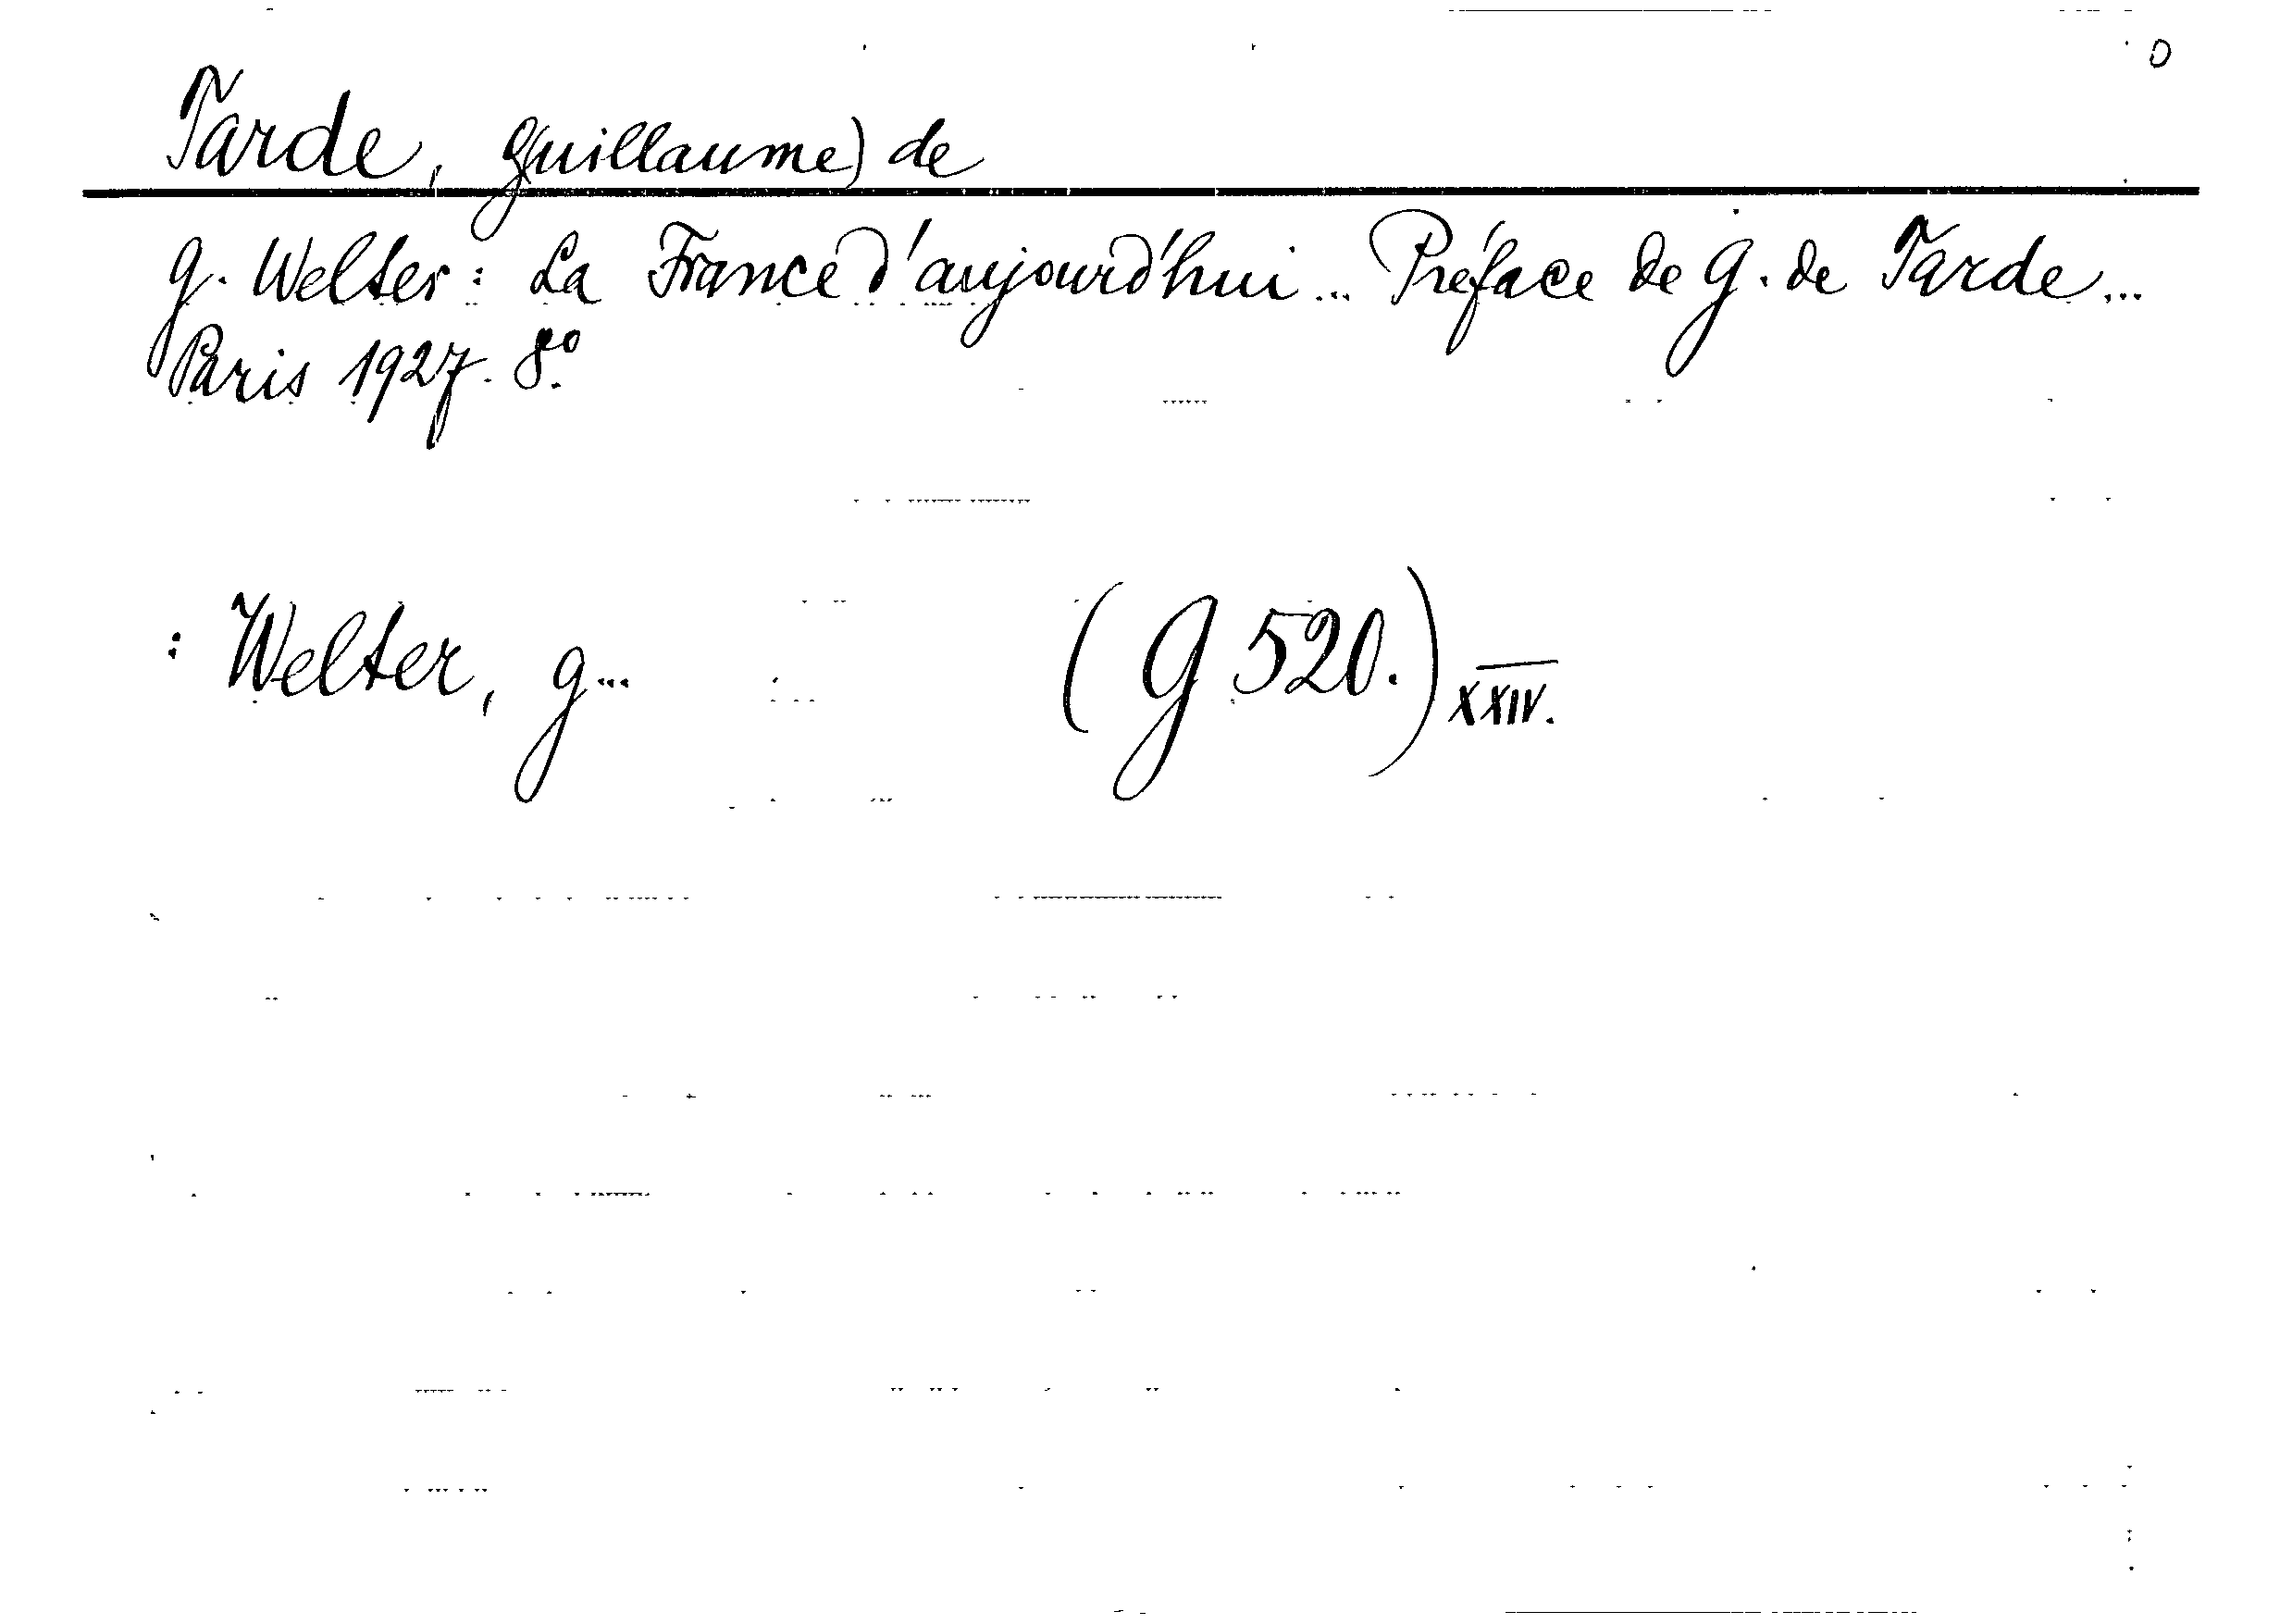 0
Tarde, G(uillaume) de
G. Welter: La France d'aujourd'hui... Préface de G. de Tarde...
Paris 1927. 8°.
: Welter, G... (G 520.) XXIV.